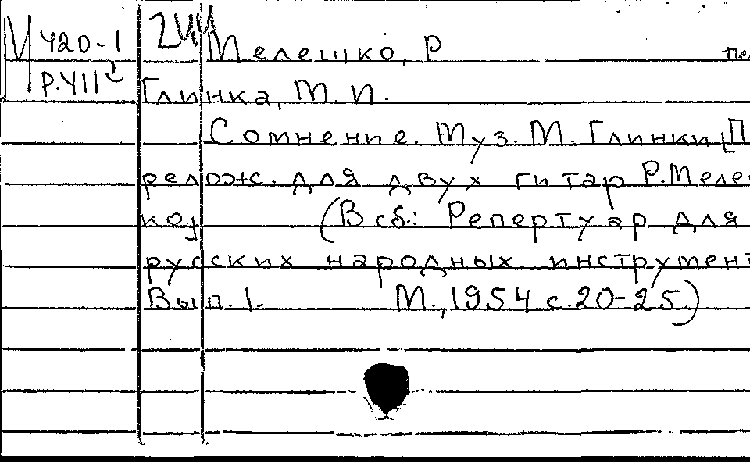 М 420-1 244 Мелешко, Р Пе
Р.411
Глинка, М. И.
Сомнение. Муз. М. Глинки [П
релож. для двух гитар Р.Меле
ко]. (В сб.: Репертуар для
русских народных инструмент
Вып. 1. М., 1954 с. 20-25.)